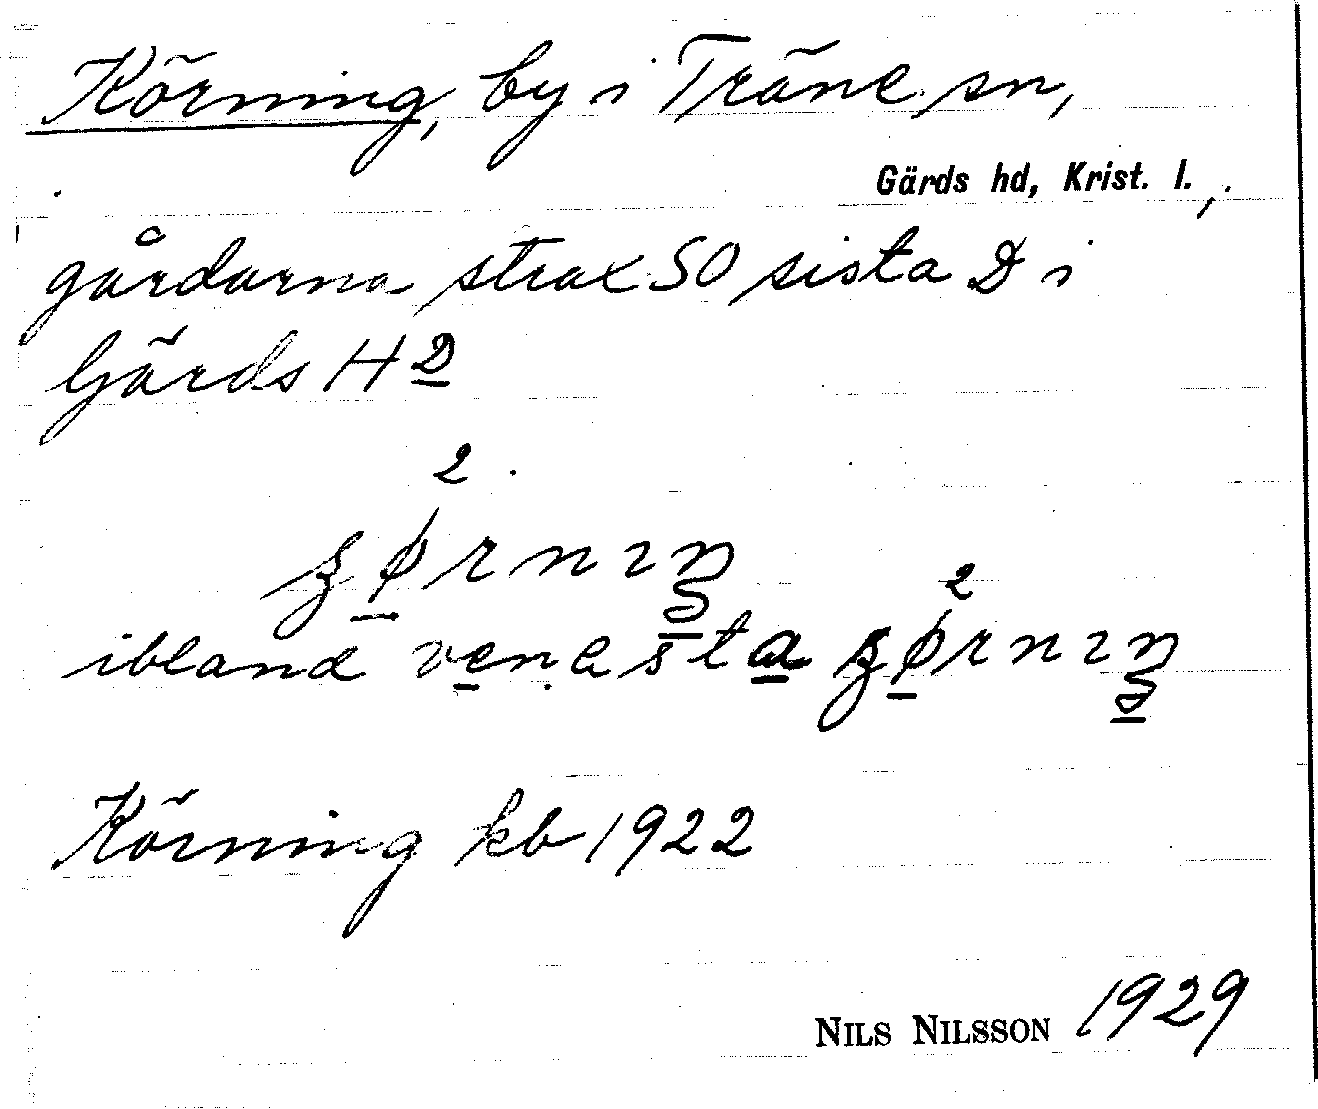 Körning, by i Träne sn,
Gärds hd, Krist. l.,
gårdarna strax SO sista D i
Gärds HD
2
ʒørnıŋ
2
ibland venesta ʒørnıŋ
Körning kb 1922
NILS NILSSON 1929